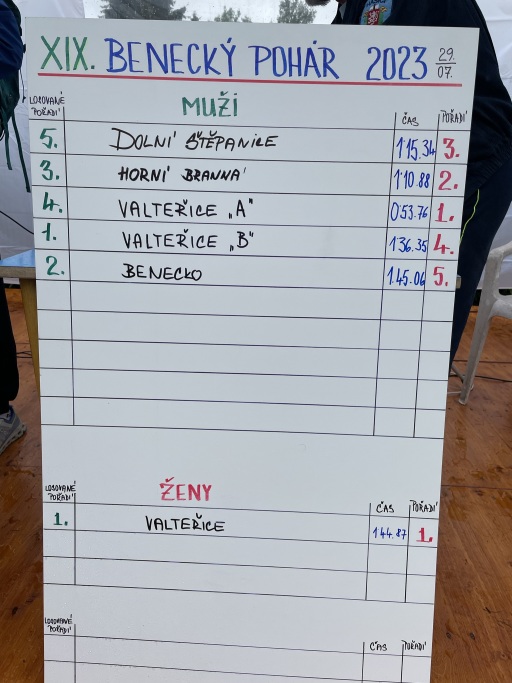 XIX. BENECKÝ POHÁR 2023 29. 07.
MUŽI
LOSOVANÉ POŘADÍ ČAS POŘADÍ
5. DOLNÍ ŠTĚPANICE 1'15.34 3.
3. HORNÍ BRANNÁ 1'10.88 2.
4. VALTEŘICE „A" 0'53.76 1.
1. VALTEŘICE „B" 1'36.35 4.
2. BENECKO 1'45.06 5.
ŽENY
LOSOVANÉ POŘADÍ ČAS POŘADÍ
1. VALTEŘICE 1'44.87 1.
LOSOVANÉ POŘADÍ ČAS POŘADÍ